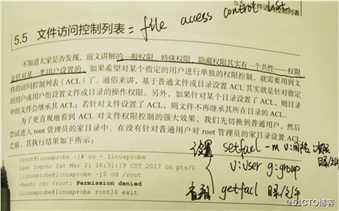 5.5 文件访问控制列表 = file access control list
不知道大家是否发现，前文讲解的一般权限、特殊权限、隐藏权限其实有一个共性——权限
是针对某一类用户设置的。如果希望对某个指定的用户进行单独的权限控制，就需要用到文
件的访问控制列表（ACL）了。通俗来讲，基于普通文件或目录设置 ACL 其实就是针对指定
的用户或用户组设置文件或目录的操作权限。另外，如果针对某个目录设置了 ACL，则目录
中的文件会继承其 ACL；若针对文件设置了 ACL，则文件不再继承其所在目录的 ACL。
为了更直观地看到 ACL 对文件权限控制的强大效果，我们先切换到普通用户，然后
尝试进入 root 管理员的家目录中。在没有针对普通用户对 root 管理员的家目录设置 ACL
之前，其执行结果如下所示：
[root@linuxprobe ~]# su - linuxprobe
Last login: Sat Mar 21 16:31:19 CST 2017 on pts/0
[linuxprobe@linuxprobe ~]$ cd /root
-bash: cd: /root: Permission denied
[linuxprobe@linuxprobe root]$ exit
设置 setfacl -m u:
u:user g:group
查看 getfacl 目录/文件
@51CTO博客